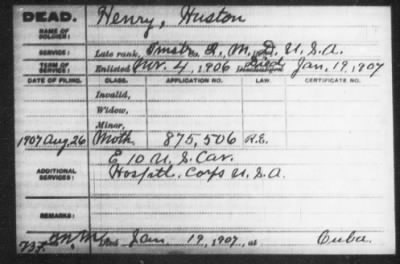 DEAD.
NAME OF SOLDIER:
Henry, Huston
SERVICE:
Late rank, Co. Q. M. D. U.S.A.
TERM OF SERVICE:
Enlisted 4, 1906 Died Jan. 19, 1907
DATE OF FILING. CLASS. APPLICATION NO. LAW. CERTIFICATE NO.
Invalid,
Widow,
Minor,
1907 Aug. 26 Moth. 875,506 R.E.
ADDITIONAL SERVICES:
E 10 U.S. Cav.
Hospitl. Corps U.S.A.
REMARKS:
Died Jan. 19, 1907, at Cuba.